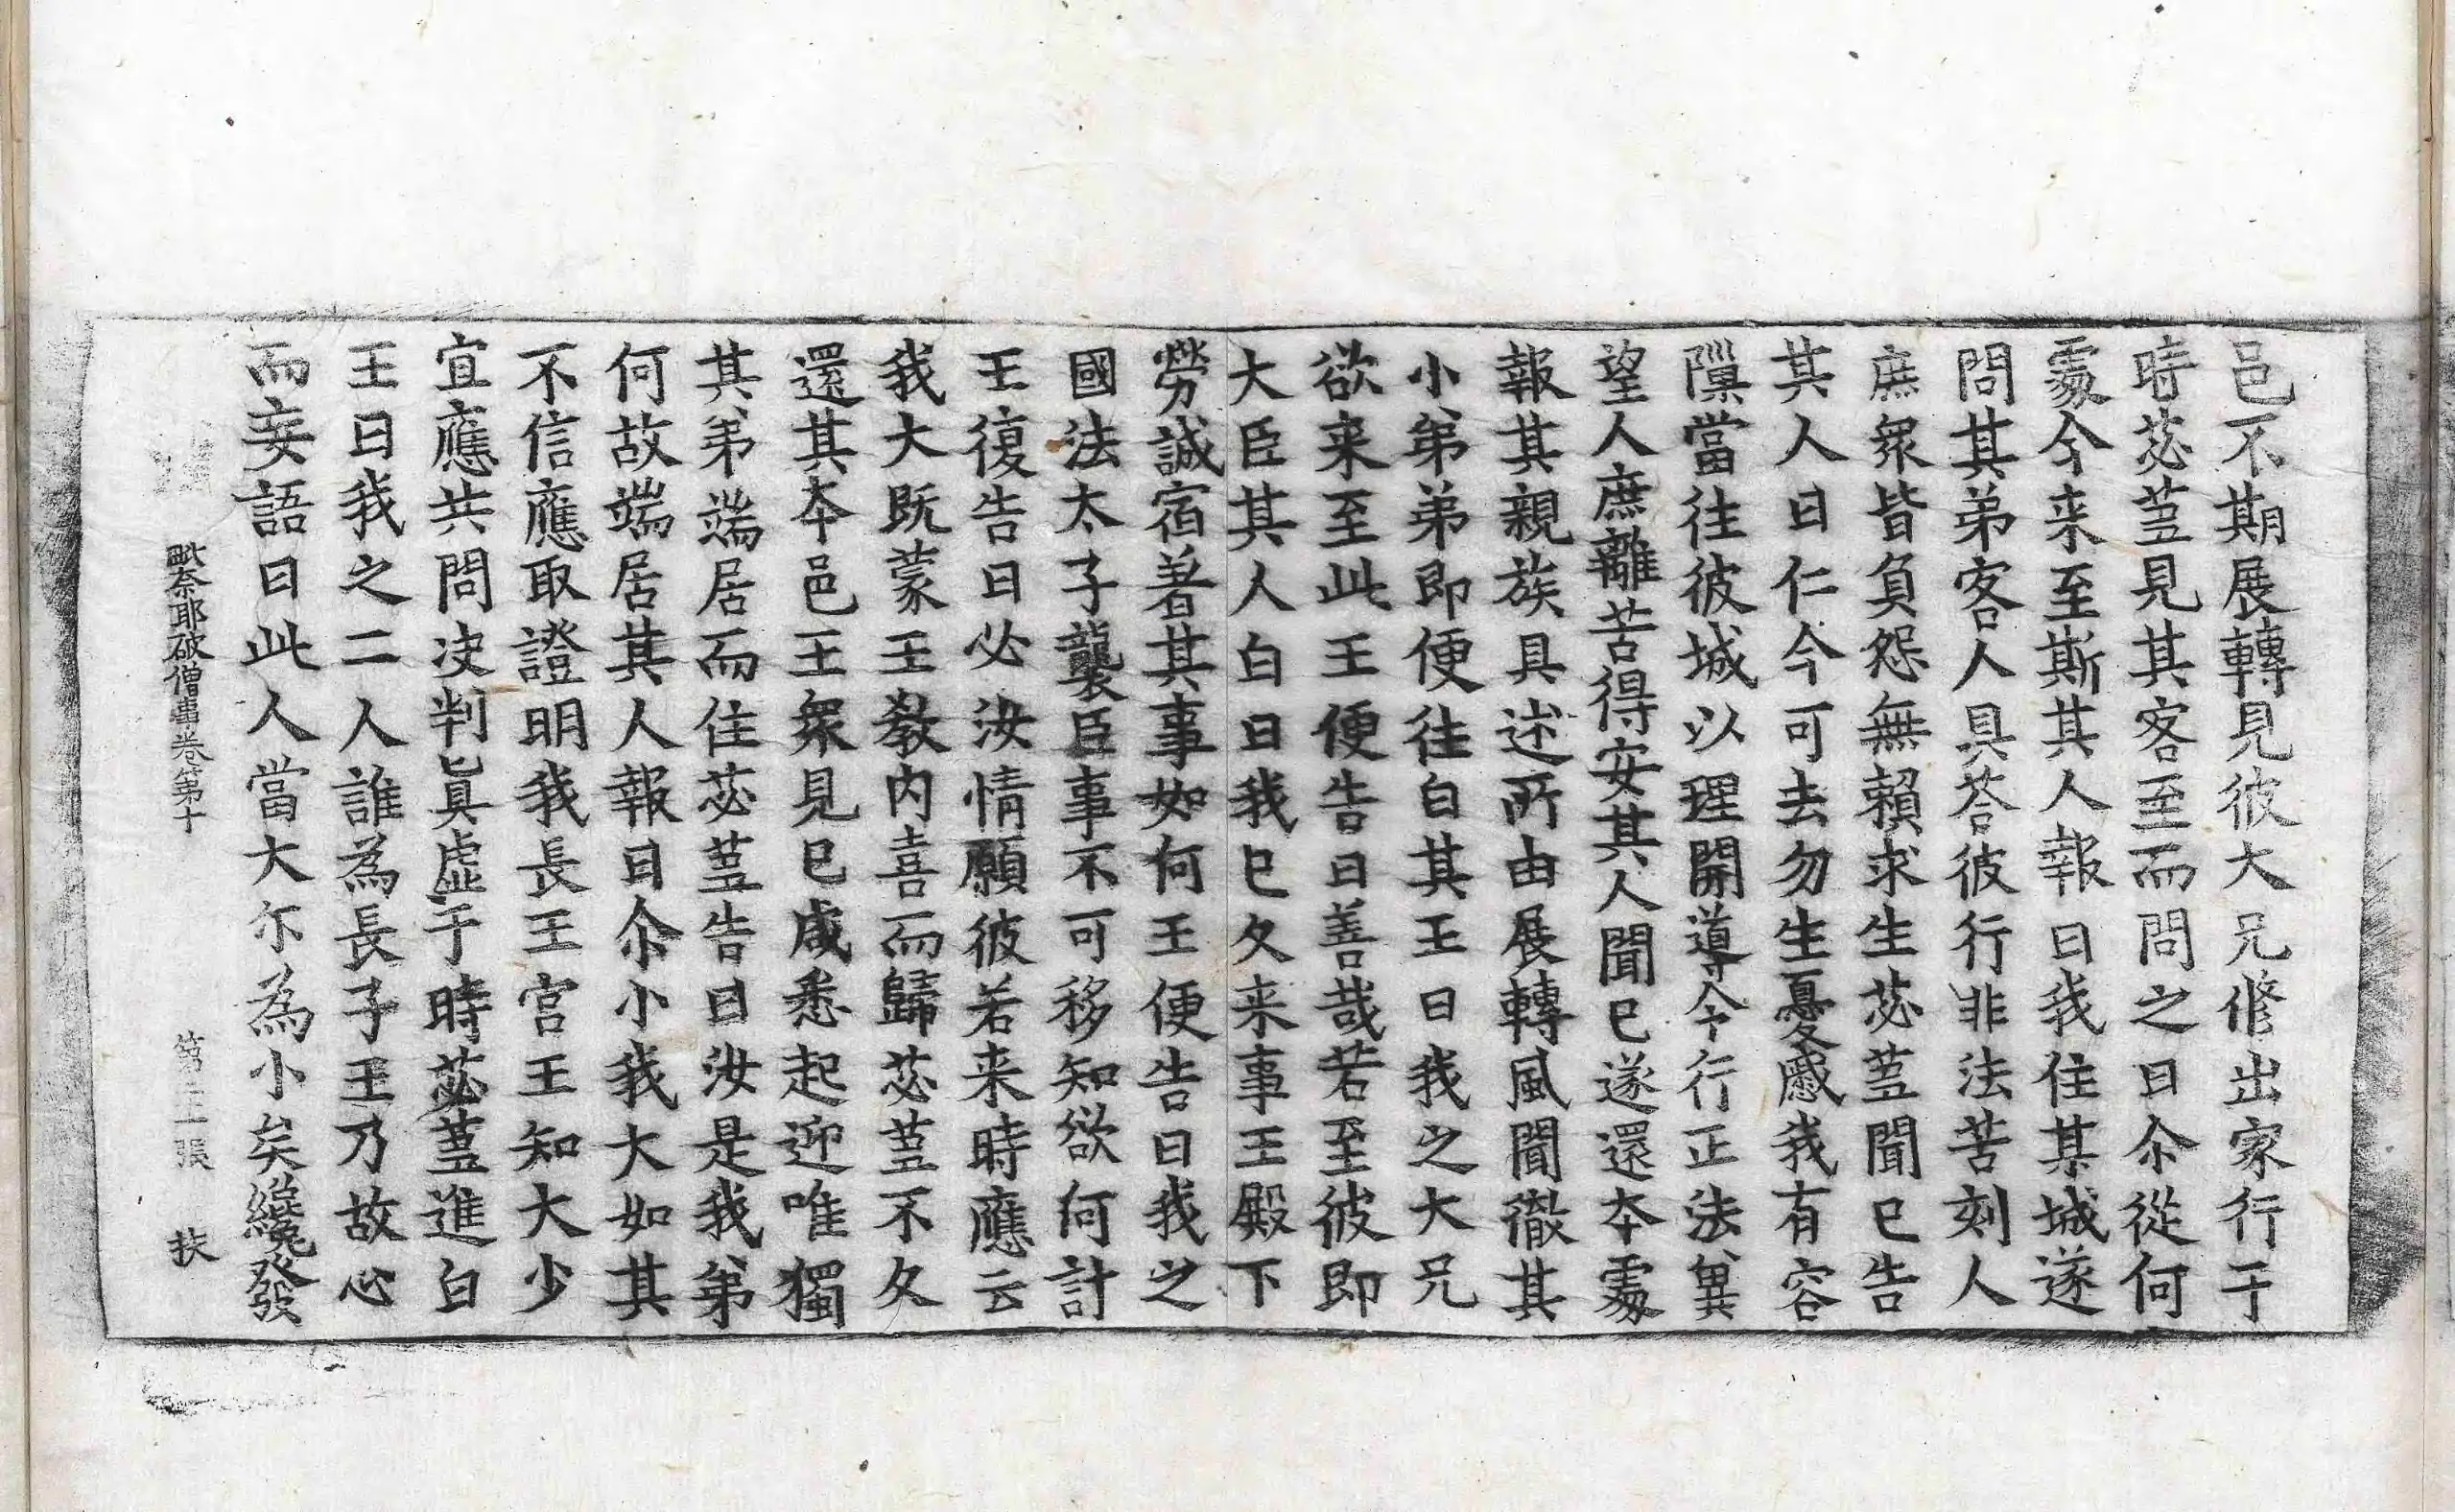 邑不期展轉見彼大兄修出家行于
時苾蒭見其客至而問之曰尒從何
處今来至斯其人報曰我住某城遂
問其弟客人具荅彼行非法苦刻人
庶衆皆負怨無賴求生苾蒭聞已告
其人曰仁今可去勿生憂慼我有容
隟當往彼城以理開導令行正法兾
望人庶離苦得安其人聞已遂還本處
報其親族具述所由展轉風聞徹其
小弟弟即便往白其王曰我之大兄
欲来至此王便告曰善哉若至彼即
大臣其人白曰我已久来事王殿下
勞誠宿著其事如何王便告曰我之
國法太子襲臣事不可移知欲何計
王復告曰必汝情願彼若来時應云
我大既蒙王教内喜而歸苾蒭不久
還其本邑王衆見已咸悉起迎唯獨
其弟端居而住苾蒭告曰汝是我弟
何故端居其人報曰尒小我大如其
不信應取證明我長王宮王知大少
宜應共問决判眞虛于時苾蒭進白
王曰我之二人誰為長子王乃故心
而妄語曰此人當大尒為小矣纔發
毗奈耶破僧事卷第十 第二張 扶